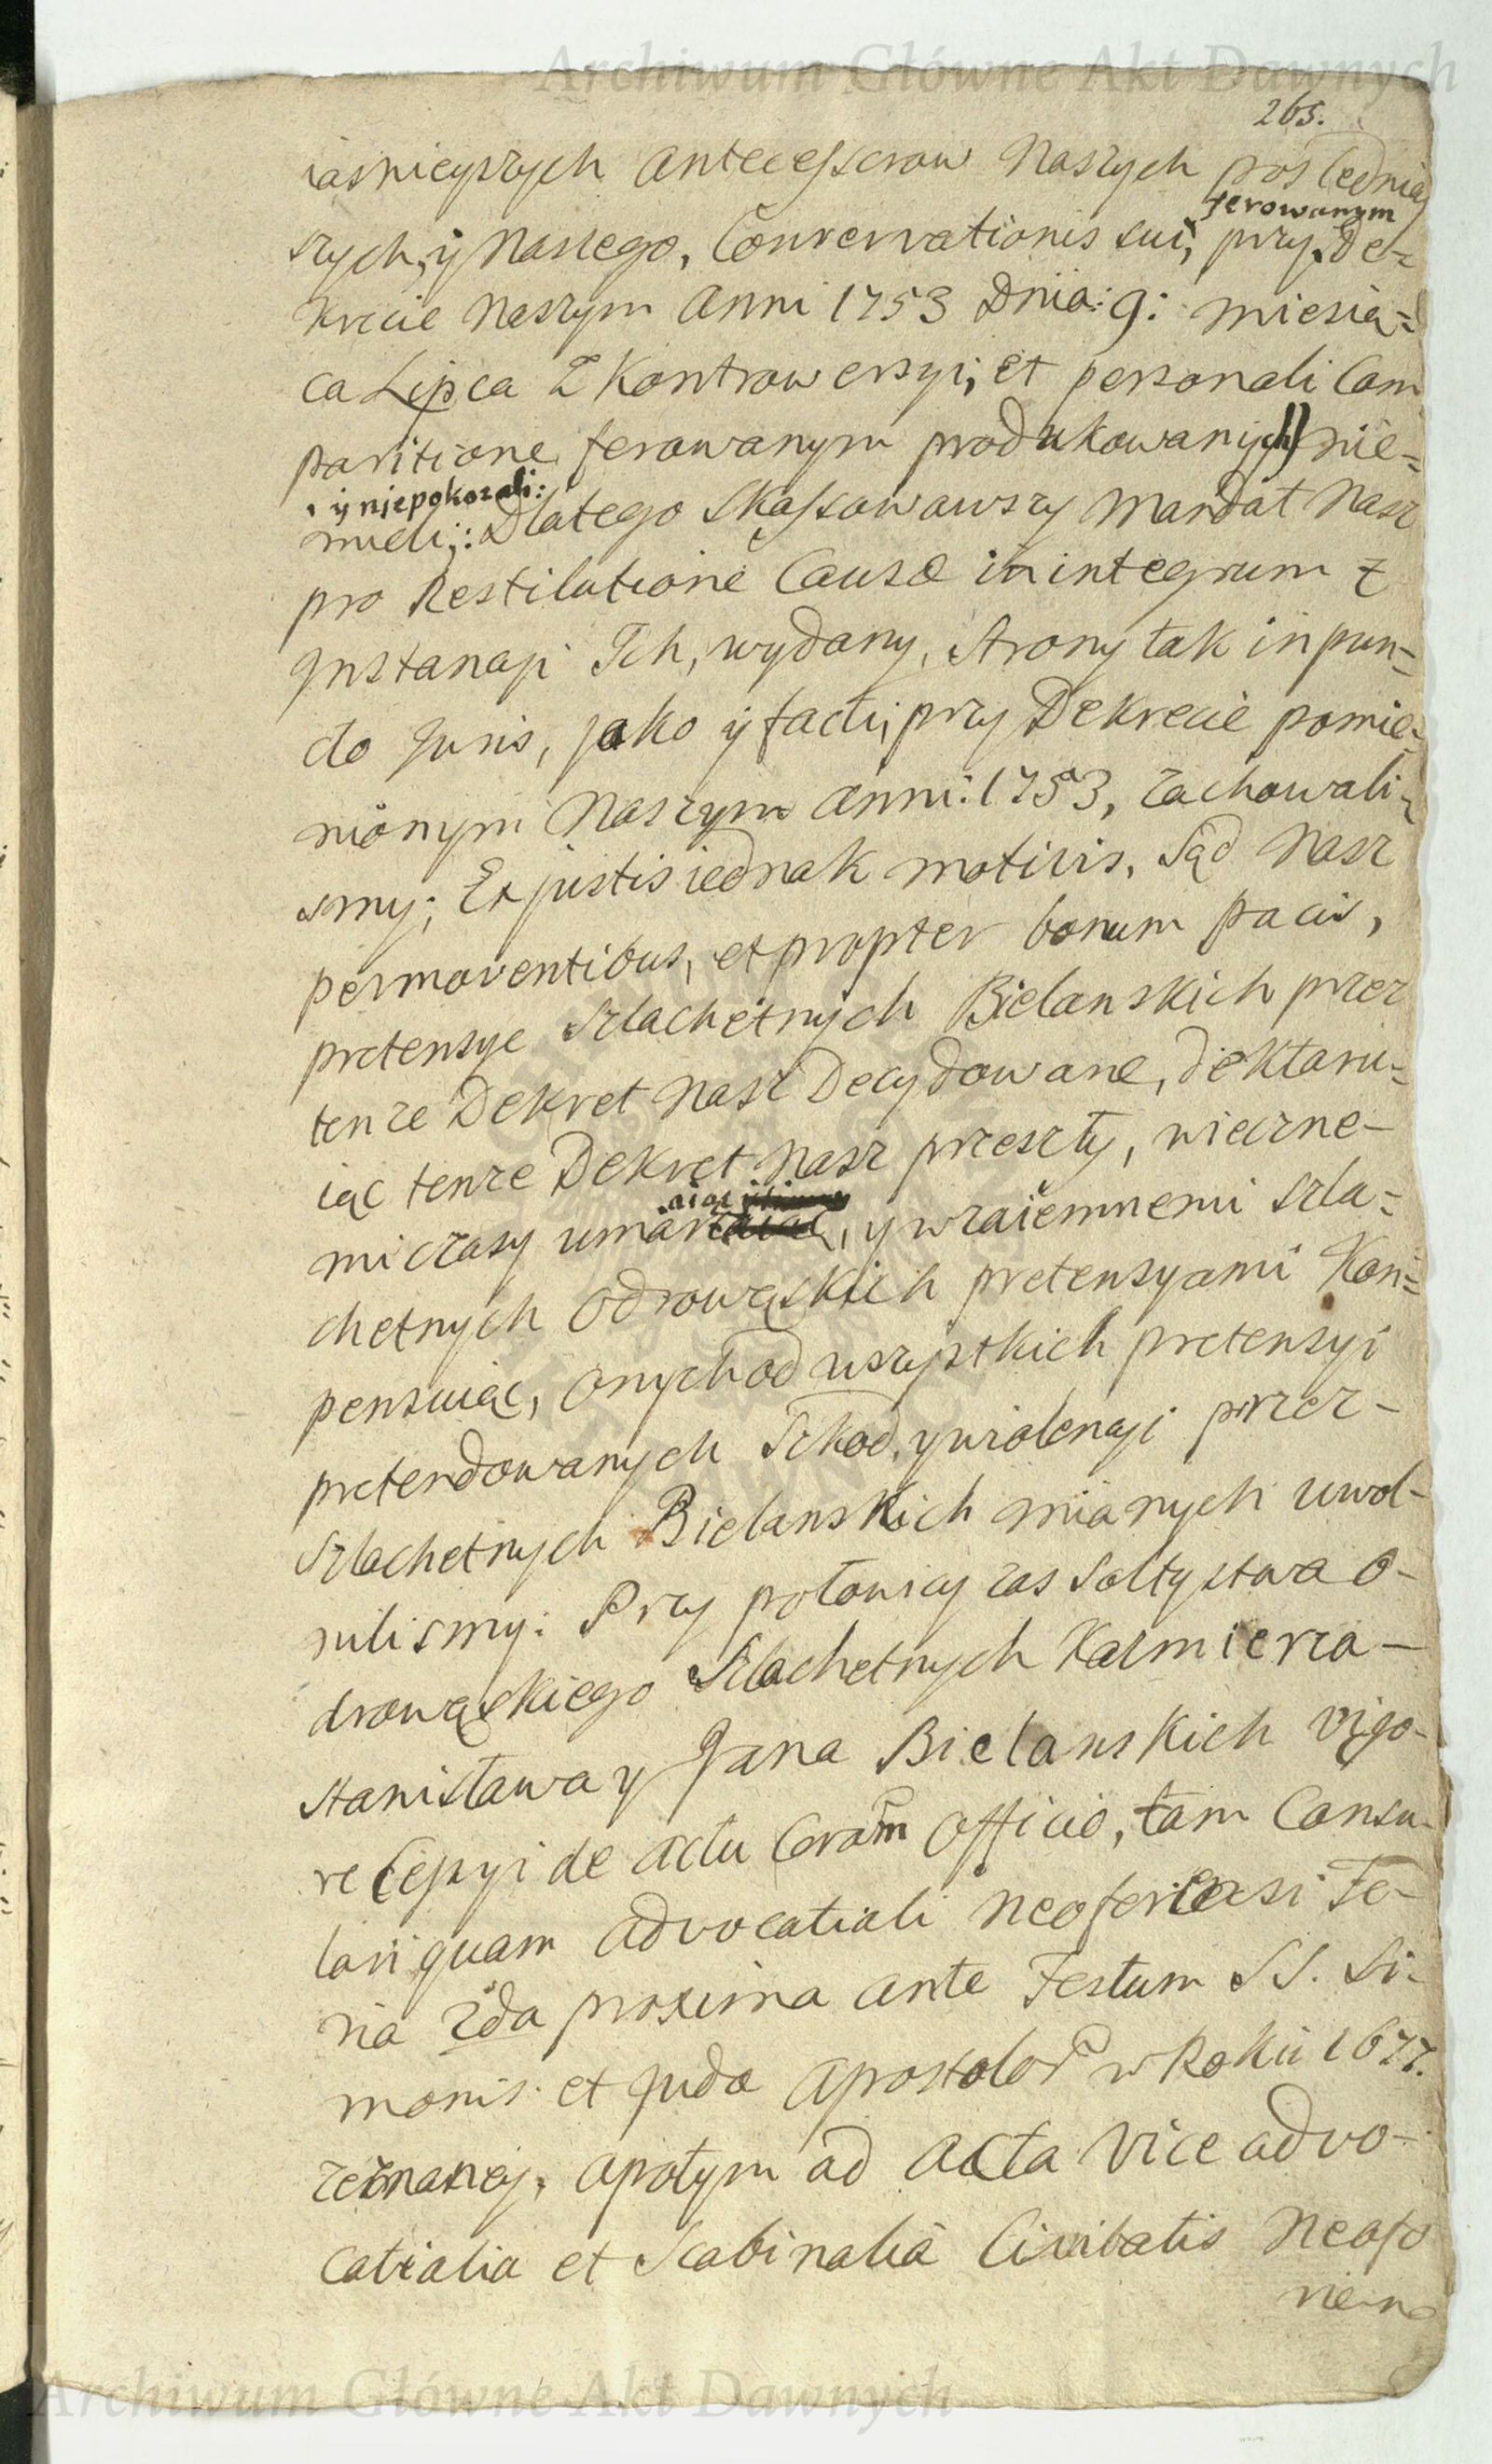 Archiwum Główne Akt Dawnych
265.
iasnieyszych Antecessorow Naszych posledniey
ferowanym
szych, y Naszego, Conservationis sui, przy De-
krecie Naszym Anni 1753 Dnia: 9: miesią-
ca Lipca z Kontrowersyi, et personali Com
paritione ferowanym produkowanych nie-
y niepokozali:
mieli,: Dlatego Skassowawszy Mandat Nasz
pro Restitutione Causæ in integrum z
Jnstancyi Jch, wydany, Strony tak in pun-
cto Juris, jako y facti, przy Dekrecie pomie-
nionym Naszym Anni: 1753, zachowali-
smy; Ex justis iednak motivis, Sąd Nasz
permoventibus, et propter bonum pacis,
pretensye Szlachetnych Bielanskich przez
tenze Dekret Nasz Decydowane, deklaru-
iąc tenze Dekret Nasz przeszły, wieczne-
aiąc
mi czasy umarz, y wzaiemnemi Szla-
chetnych Odrowąskich pretensyami Kom-
pensuiąc, onych od wszystkich pretensyi
pretendowanych Szkod, y violencyi przez-
Szlachetnych Bielanskich mianych uwol-
nilismy: Przy połowicy zas Sołtystwa O-
drowąskiego Szlachetnych Kazmierza-
Stanisława y Jana Bielanskich vigo-
re Cessyi de actu Coram Officio, tam Consu-
lari quam advocatiali Neoforiensi Fe-
ria 2da proxima ante Festum SS. Si-
monis et Judæ Apostolor w Roku 1677.
zeznaney, a potym ad Acta Vice advo-
catialia et Scabinalia Civitatis Neofo
riens
Archiwum Główne Akt Dawnych